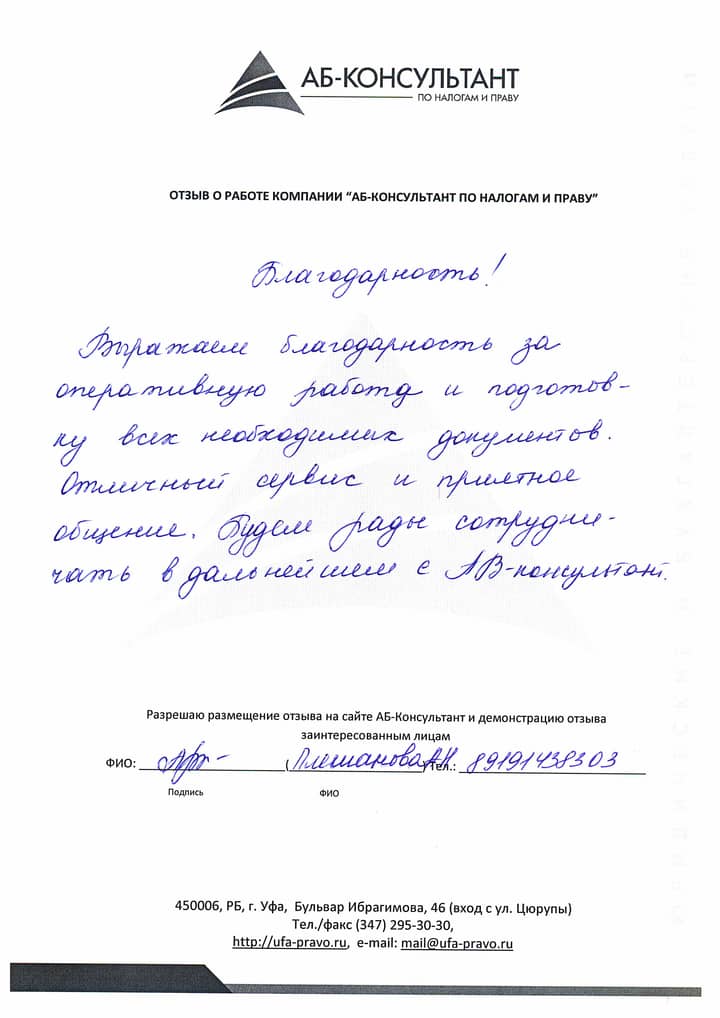 АБ-КОНСУЛЬТАНТ
ПО НАЛОГАМ И ПРАВУ
ОТЗЫВ О РАБОТЕ КОМПАНИИ “АБ-КОНСУЛЬТАНТ ПО НАЛОГАМ И ПРАВУ”
Благодарность!
Выражаем благодарность за
оперативную работу и подготов-
ку всех необходимых документов.
Отличный сервис и приятное
общение. Будем рады сотрудни-
чать в дальнейшем с АВ-консультант.
Разрешаю размещение отзыва на сайте АБ-Консультант и демонстрацию отзыва
заинтересованным лицам
ФИО: (Плешанова А.Н.) Тел.: 89191438303
Подпись ФИО
450006, РБ, г. Уфа, Бульвар Ибрагимова, 46 (вход с ул. Цюрупы)
Тел./факс (347) 295-30-30,
http://ufa-pravo.ru, e-mail: mail@ufa-pravo.ru